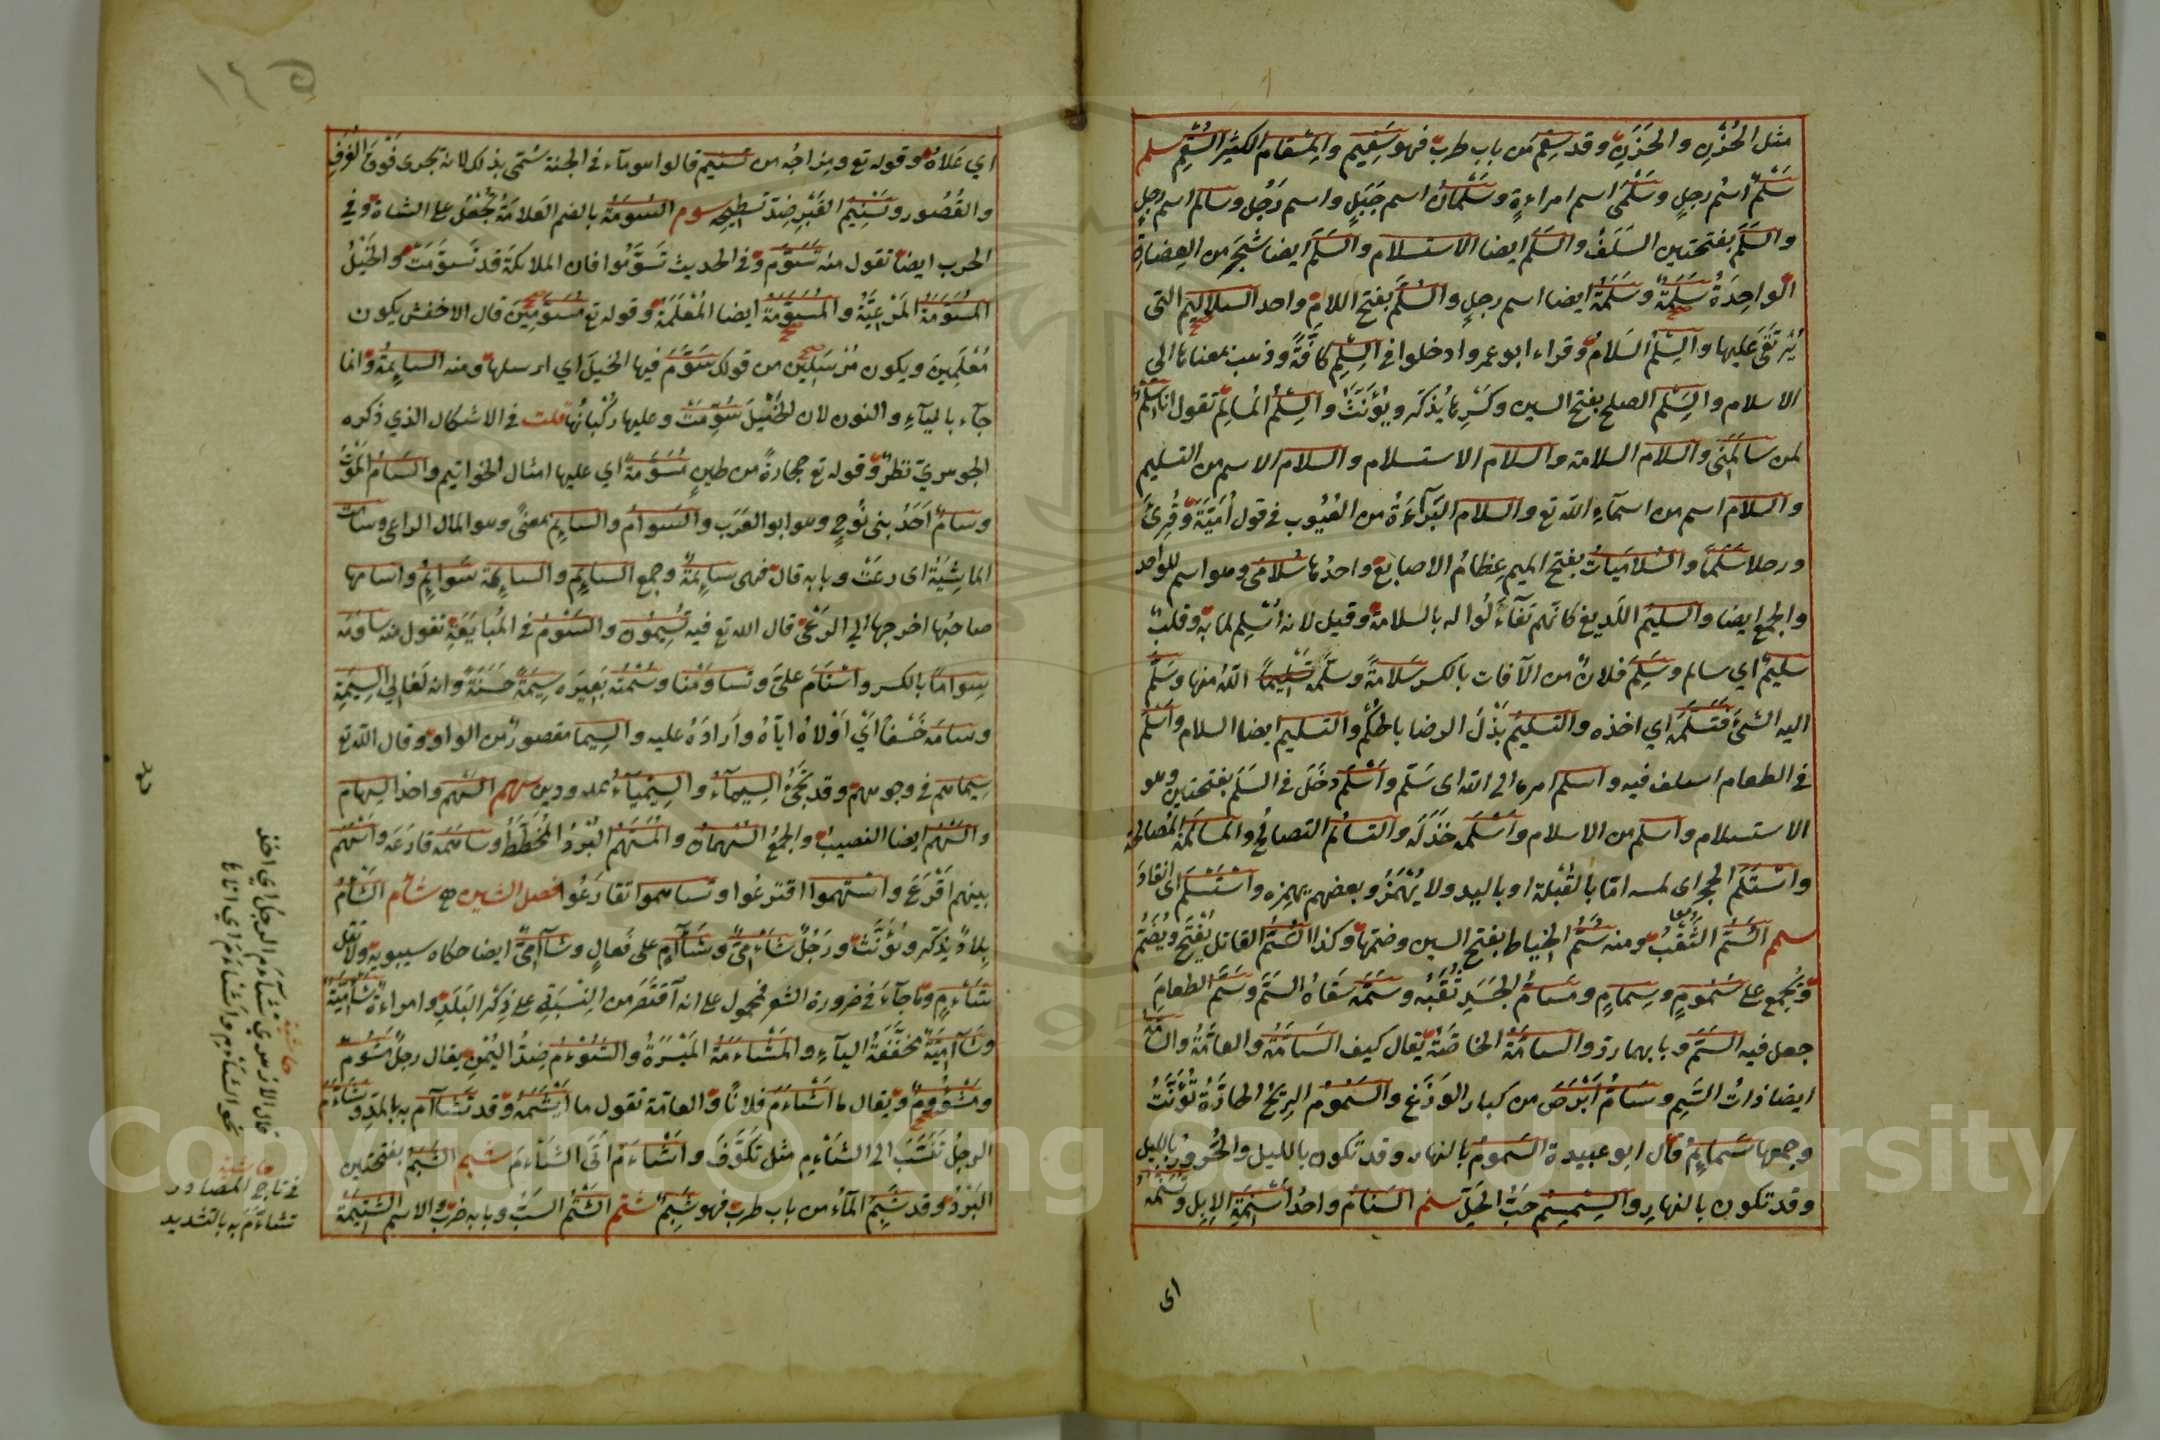 مثل الحُزْنِ والحَزَنِ وقد سَقِمَ من باب طرب فهو سَقِيم والمِسْقام الكثير السُّقْم سلم
سَلْمٌ اسمُ رجلٍ وسَلْمَى اسم امراءةٍ وسَلْمانُ اسم جَبَلٍ واسم رَجُل وسالم اسم رجل
والسَّلَم بفتحتين السَّلَفُ والسَّلَم ايضا الاستسلام والسَّلَم ايضا شَجَر من العِضاهِ
الواحِدَةُ سَلَمَةٌ وسَلَمَةُ ايضا اسم رجلٍ والسُّلَّم بفتح اللام واحد السلاليم التى
يُرْتَقَى عَلَيها والسِّلْمُ السَلامُ وقراء ابوعمرو ادخلوا في السِّلْم كافَّةً وذهب بمعناها الى
الاسلام والسِّلْم الصلح بفتح السين وكَسْرِها يُذكَّر ويُؤنَّثُ والسِّلْمُ المُسالِمُ تقول انا سِلْمٌ
لمن سالَمَنى والسلام السلامة والسلام الاستسلام والسلام الاسم من التسليم
والسلام اسم من اسمآءِ الله تع والسلام البَرآءَةُ من العُيُوب في قول أُمَيَّةَ وقُرِئَ
ورجلا سَلَمًا والسُّلامَيَاتُ بفتح الميم عِظامُ الاصابع واحدُها سُلامَى وهو اسم للواحد
والجمع ايضا والسليمُ اللّديغ كانهم تَفآءَلُوا له بالسلامة وقيل لانه أُسْلِم لما به وقلبٌ
سليمٌ اي سالم وسَلِمَ فلانٌ من الآفات بالكسر سَلامَةً وسلَّمه تَسْلِيمًا اللّهُ منها وسَلَّمَ
اليه الشئَ فَتَسَلَّمَه اي اخذه والتسليمُ بَذْلُ الرضا بالحُكْم والتسليم ايضا السلام واَسْلَمَ
في الطعام اسلف فيه واسلم امره الى الله اى سَلَّم واَسْلَمَ دَخَلَ في السَّلَم بفتحتين وهو
الاستسلام واسلم من الاسلام واَسْلَمَه خَذَلَه والتسالُم التصالُحُ والمُسالَمَة المُصالحة
واسْتَلَم الحجر اى لمسه امّا بالقُبْلَة او باليد ولا يُهْمَزُ وبعضهم يهمزه واسْتَسْلَمَ اى انقادَ
سمم السَّمُّ الثَّقْبُ ومنه سَمُّ الخياط بفتح السين وضمّها وكذا السَّمُّ القاتل يُفْتَح ويُضَمُّ
ويُجْمع على سُمُومٍ وسِمامٍ ومَسامُّ الجَسَدِ ثُقَبُه وسَمَّه سَقاهُ السَّمَّ وسَمَّ الطعامَ
جعل فيه السَّمَّ وبابهما رد والسامَّةُ الخاصَّةُ يقال كيف السامَّةُ والعامَّةُ والسامَّةُ
ايضا ذاتُ السَّمِّ وسامُّ أَبْرَصَ من كبار الوَزَغ والسَمُومُ الرِيحُ الحارَّةُ تُؤَنَّثُ
وجمعها سَمائِمُ قال ابوعبيدة السَمومُ بالنهار وقد تكون بالليل والحَرُورُ بالليل
وقد تكون بالنهارِ والسِّمْسِمُ حَبُّ الحَلّ سنم السَنامُ واحدُ اَسْنِمَةِ الاِبِل وسَنَّمَهُ
اى
١٤٥
اي عَلاهُ وقوله تع ومزاجُه من تسنيم قالوا هو مآء في الجنة سُمّى بذلك لانه يجرى فَوْقَ الغُرَفِ
والقُصُور وتَسْنِيمُ القَبْرِ ضِدُّ تسطيحه سوم السُومَةُ بالضم العَلامَةُ تُجْعَلُ على الشاة وفي
الحرب ايضًا تقول منه تَسَوَّم وفي الحديث تَسَوَّمُوا فان الملائكة قد تَسَوَّمَت والخَيْلُ
المُسَوَّمَةُ المَرْعِيَّةُ والمُسَوَّمَةُ ايضا المُعْلَمَةُ وقوله تع مُسَوَّمِينَ قال الاخفش يكون
مُعْلَمِينَ ويكون مُرْسَلِينَ من قولك سَوَّمَ فيها الخيلَ اي ارسلها ومنه السائِمَةُ وانما
جآء باليآءِ والنون لان الخَيْلَ سُوِّمَتْ وعليها رُكْبانُها قلت في الاشكال الذي ذكره
الجوهري نظرٌ وقوله تع حجارةً من طينٍ مُسَوَّمَةً اي عليها امثال الخواتيم والسامُ المَوْتُ
وسامٌ اَحَدُ بنى نُوحٍ وهو ابوالعَرَب والسَوَامُ والسايِمُ بمعنىً وهو المال الراعى وسامت
الماشِيَةُ اى رعَتْ وبابه قال فهى سايِمَةٌ وجمع السايِم والسايِمَة سَوَايِمُ واسامها
صاحبُها اخرجها الى الرَعْى قال الله تع فيه تُسِيمُون والسَّوْمُ في المُبايَعَةِ تقول منه ساوَمَه
سِوامًا بالكسر واسْتَامَ علىَّ وتَساوَمْنا وسُمْتُه بَعِيرَه سِيمَةً حَسَنَةً وانه لَغالى السِيمَةِ
وسامَه خَسْفًا اَيْ اَوْلاهُ ايّاهُ وأَرادَهُ عليه والسِيما مقصور من الواو وقال الله تع
سِيماهُم في وجوههم وقد يَجِئُ السِيماءُ والسِيمِيَاءُ ممدودين سهم السَّهْم واحد السِهامِ
والسَّهْم ايضا النصيب والجمعُ السُهْمانُ والمُسَهَّمُ البُرْدُ المُخَطَّطُ وساهَمَه قارَعَه واَسْهَمَ
بينهم اَقْرَعَ واسْتَهموا اقترعُوا وتساهموا تقارَعُوا فصل الشين شأم الشَّأْمُ
بِلادٌ يُذكَّر ويُؤَنَّثُ ورَجُلٌ شَاْمِىٌّ وشَآمٍ على فَعالٍ وشَآمِىٌّ ايضا حكاه سيبويه ولا تقل
شَأْمٍ وما جاءَ في ضرورة الشعر فمحمول على انه اقتصَرَ من النِسْبَةِ على ذِكْرِ البَلَدِ وامراءة شَأْمِيَّةٌ
وشَآمِيَةٌ مخففةُ اليآءِ والمَشْأَمَةُ المَيْسَرَةُ والشُؤْمُ ضِدُّ اليُمْنِ يقال رجلٌ مَشُومٌ
ومَشْؤُومٌ ويقال ما اَشْأَمَ فلانًا والعامّة تقول ما اَيْشَمَهُ وقد تَشَآم به بالمدّ وتشأَّمَ
الرجلُ تَنَسَّبَ الى الشَّاْمِ مثل تَكَوَّفَ واَشْأَمَ اَتَى الشَّأْمَ شبم الشَّبَم بفتحتين
البَرْدُ وقد شَبِمَ المآءُ من باب طرب فهو شَبِمٌ شتم الشَّتْمُ السَبُّ وبابه ضرب والاسم الشَتِيمَةُ
حاشية
قال الازهري تشآءم الرجل اي اخذ
نحو الشأم واشأم اي اتاها
حاشية
في تاج المصادر
تشأّم به بالتشديد